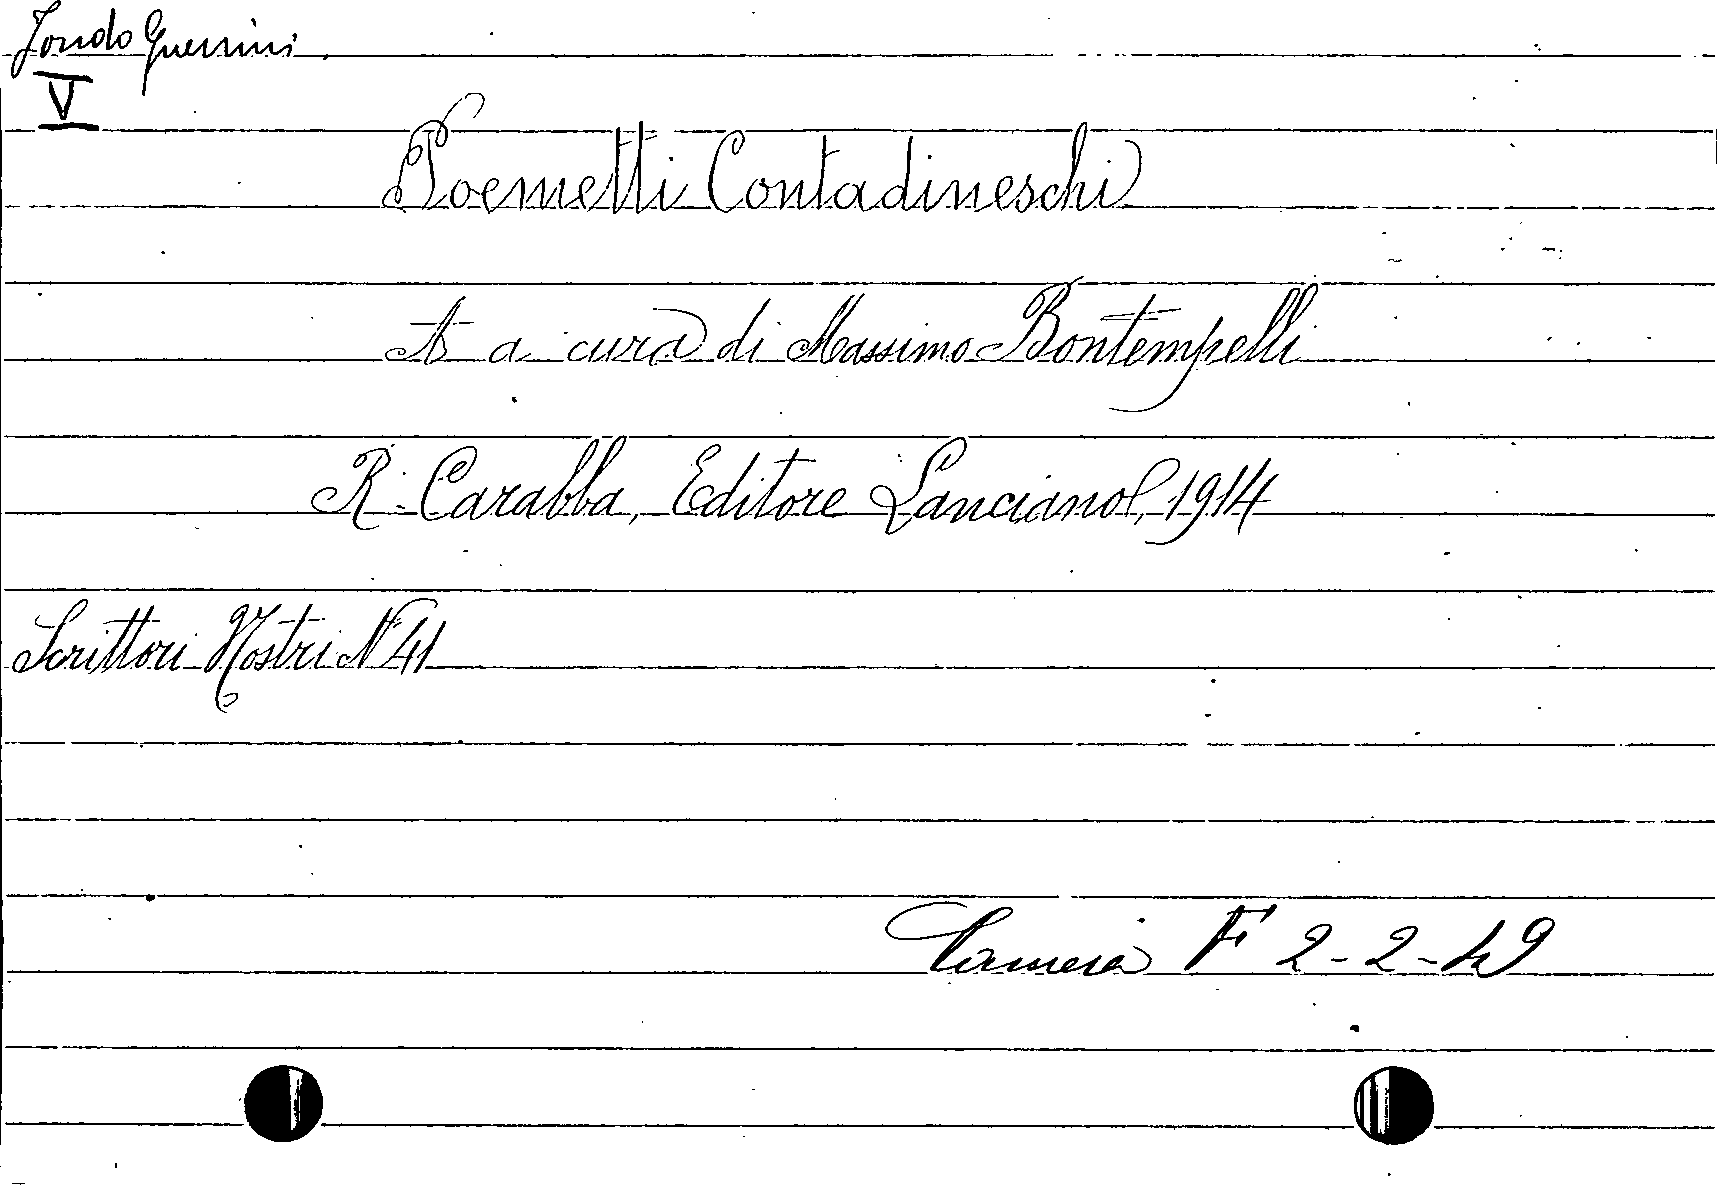 Fondo Guerrini
V
Poemetti Contadineschi
A a cura di Massimo Bontempelli
R. Carabba, Editore Lanciano, 1914
Scrittori Nostri N 41
Camera F 2-2-49